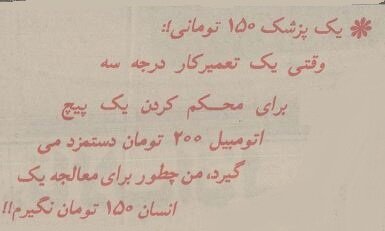 ❋ یک پزشک ۱۵۰ تومانی!:
وقتی یک تعمیرکار درجه سه
برای محکم کردن یک پیچ
اتومبیل ۲۰۰ تومان دستمزد می
گیرد، من چطور برای معالجه یک
انسان ۱۵۰ تومان نگیرم!!